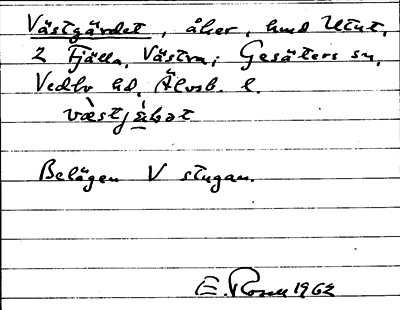 Västgärdet, åker, hmd Utnt.
2 Fjälla, Västra; Gesäters sn,
Vedbo hd, Älvsb. l.
Belägen V stugan.
E. Rosell 1962